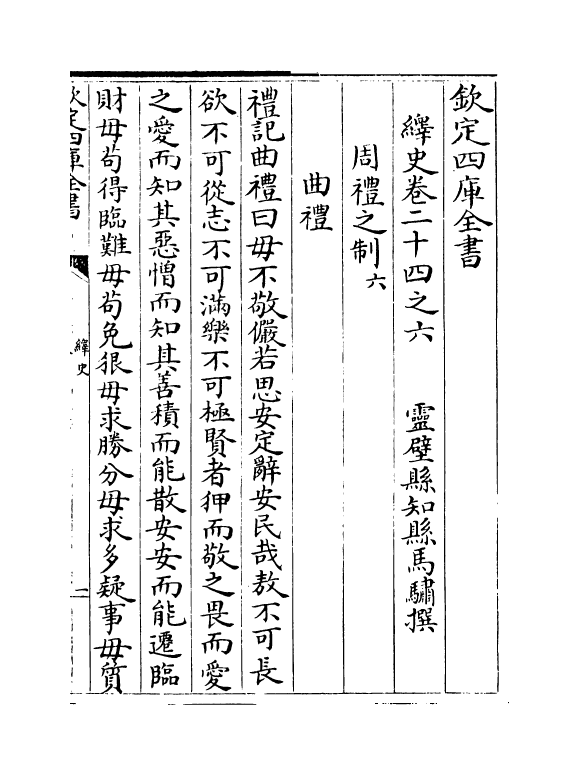 欽定四庫全書
繹史卷二十四之六　靈壁縣知縣馬驌撰
周禮之制六
曲禮
禮記曲禮曰毋不敬儼若思安定辭安民哉敖不可長
欲不可從志不可滿樂不可極賢者狎而敬之畏而愛
之愛而知其惡憎而知其善積而能散安安而能遷臨
財毋苟得臨難毋苟免狠毋求勝分毋求多疑事毋質
欽定四庫全書
繹史
一